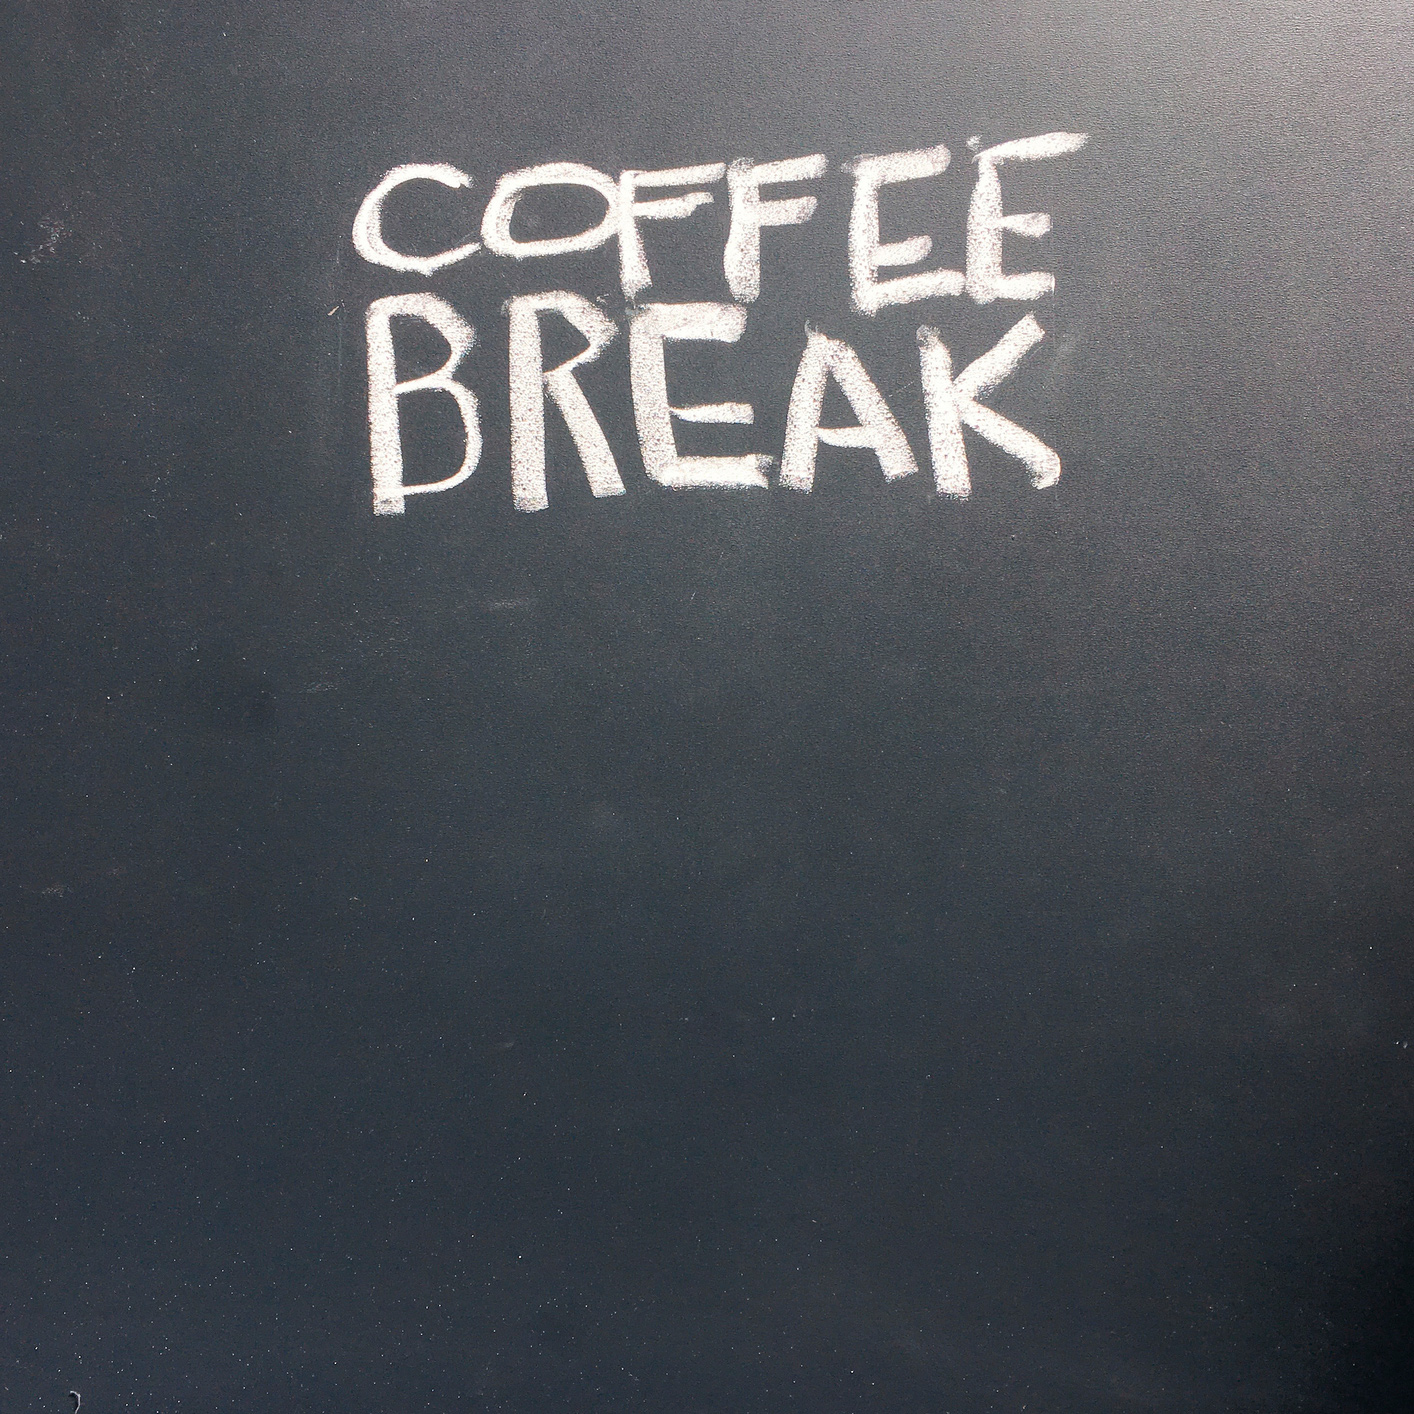 COFFEE
BREAK